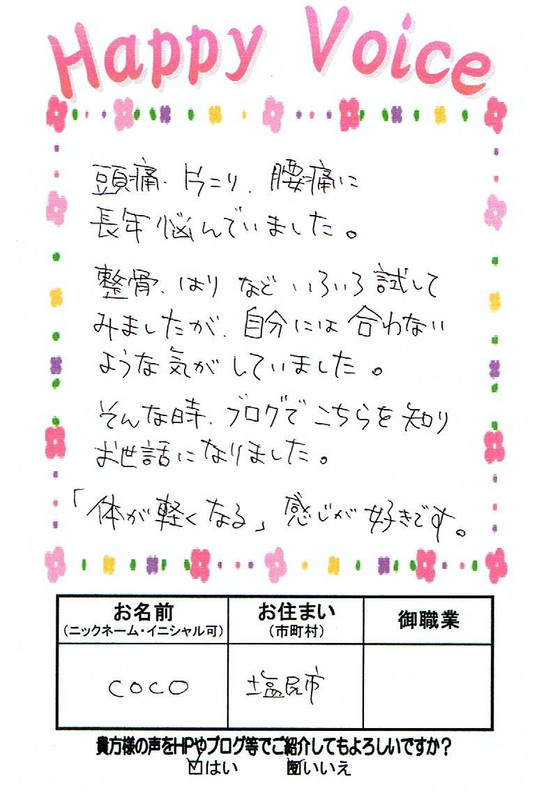 Happy Voice
頭痛、肩こり、腰痛に
長年悩んでいました。
整骨、はりなどいろいろ試して
みましたが、自分には合わない
ような気がしていました。
そんな時、ブログでこちらを知り
お世話になりました。
「体が軽くなる」感じが好きです。
お名前
(ニックネーム・イニシャル可)
お住まい
(市町村)
御職業
COCO
塩尻市
貴方様の声をHPやブログ等でご紹介してもよろしいですか?
☑はい ☑いいえ